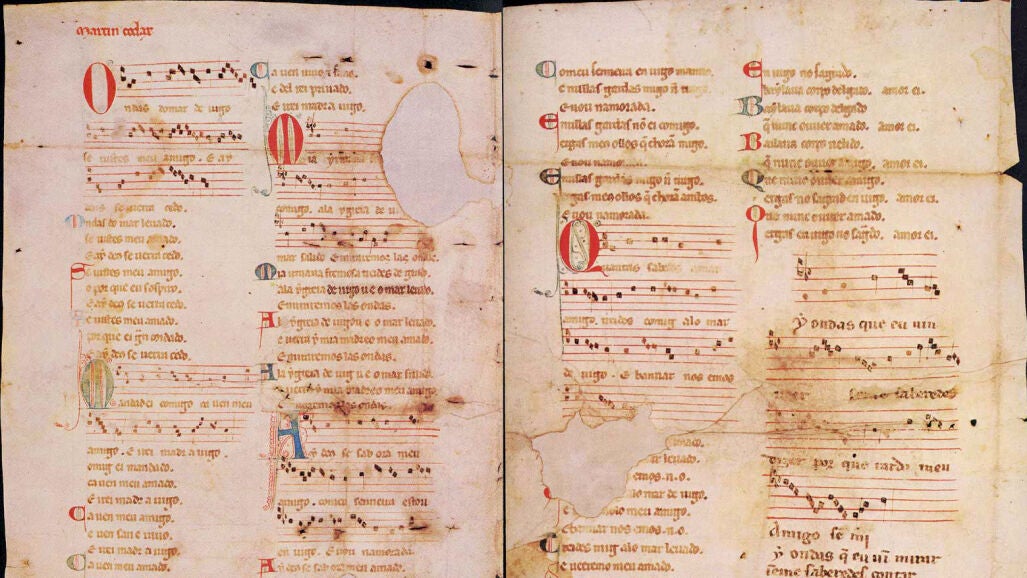 Martin codax
Ondas do mar de vigo
se vistes meu amigo. E ay
deus se verra cedo.
Ondas do mar levado.
se vistes meu amado.
E ay deus se verra cedo.
Se vistes meu amigo.
o por que eu sospiro.
E ay deus se verra cedo.
Se vistes meu amado.
por que ei gran coidado.
E ay deus se verra cedo.
Mandad ei comigo ca ven meu
amigo. E irei madr a vigo.
comig ei mandado.
ca ven meu amado.
E irei madr a vigo.
Ca ven meu amigo.
e ven san e vivo.
E irei madr a vigo.
Ca ven meu amigo.
Ca ven viv e sano.
e del rei privado.
E irei madr a vigo.
Mia yrmana
comigo. ala ygreia de vi
mar salido E miraremos las ondas.
Mia irmana fremosa treides de grado.
ala ygreia de vigo u e o mar levado.
E miraremos las ondas.
Al ygreia de vigo u e o mar levado.
e verra y mia madre e meu amado.
E miraremos las ondas.
Ala ygreia de vig u e o mar salido
e verra y mia madre e meu amigo
E miraremos las ondas.
Ay deus se sab ora meu
amigo. comeu senneira estou
en vigo. E vou namorada.
Ay deus se sab ora meu
Comeu senneira en vigo manno.
E nullas gardas migo non
E vou namorada.
E nullas gardas non ei comigo.
ergas meus ollos que choran migo.
E vou namo
E nullas gardas migo non trago.
ergas meus ollos que choran ambos.
E vou namorada.
Quantas sabedes amar
amigo. treides comig alo mar
de vigo. E bannar nos emos
amado.
mar levado.
emos .n.o.
lo mar de vigo.
lo meu amigo.
E bannar nos emos .n.o.
Treides mig alo mar levado.
e veeremo meu amado.
En vigo no sagrado.
baylava corpo delgado. amor ei.
Baylava corpo delgado
que nunc ouver amado. amor ei.
Bailava corpo velido.
que nunc ouver amigo. amor ei.
Que nunc ouver amigo.
ergas no sagrad en vigo. amor ei.
Que nunc ouver amado.
ergas en vigo no sagrado. amor ei.
Ay ondas que eu vin
veer se me saberedes
dizer por que tarda meu
Amigo se mi
Ay ondas que eu vin mirar
se me saberedes contar